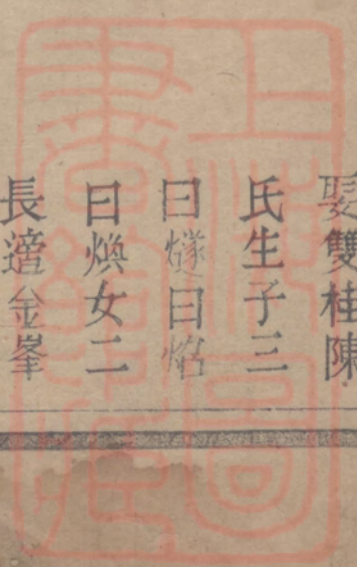 娶雙桂陳
氏生子三
曰燧曰焰
曰煥女二
長適金峯